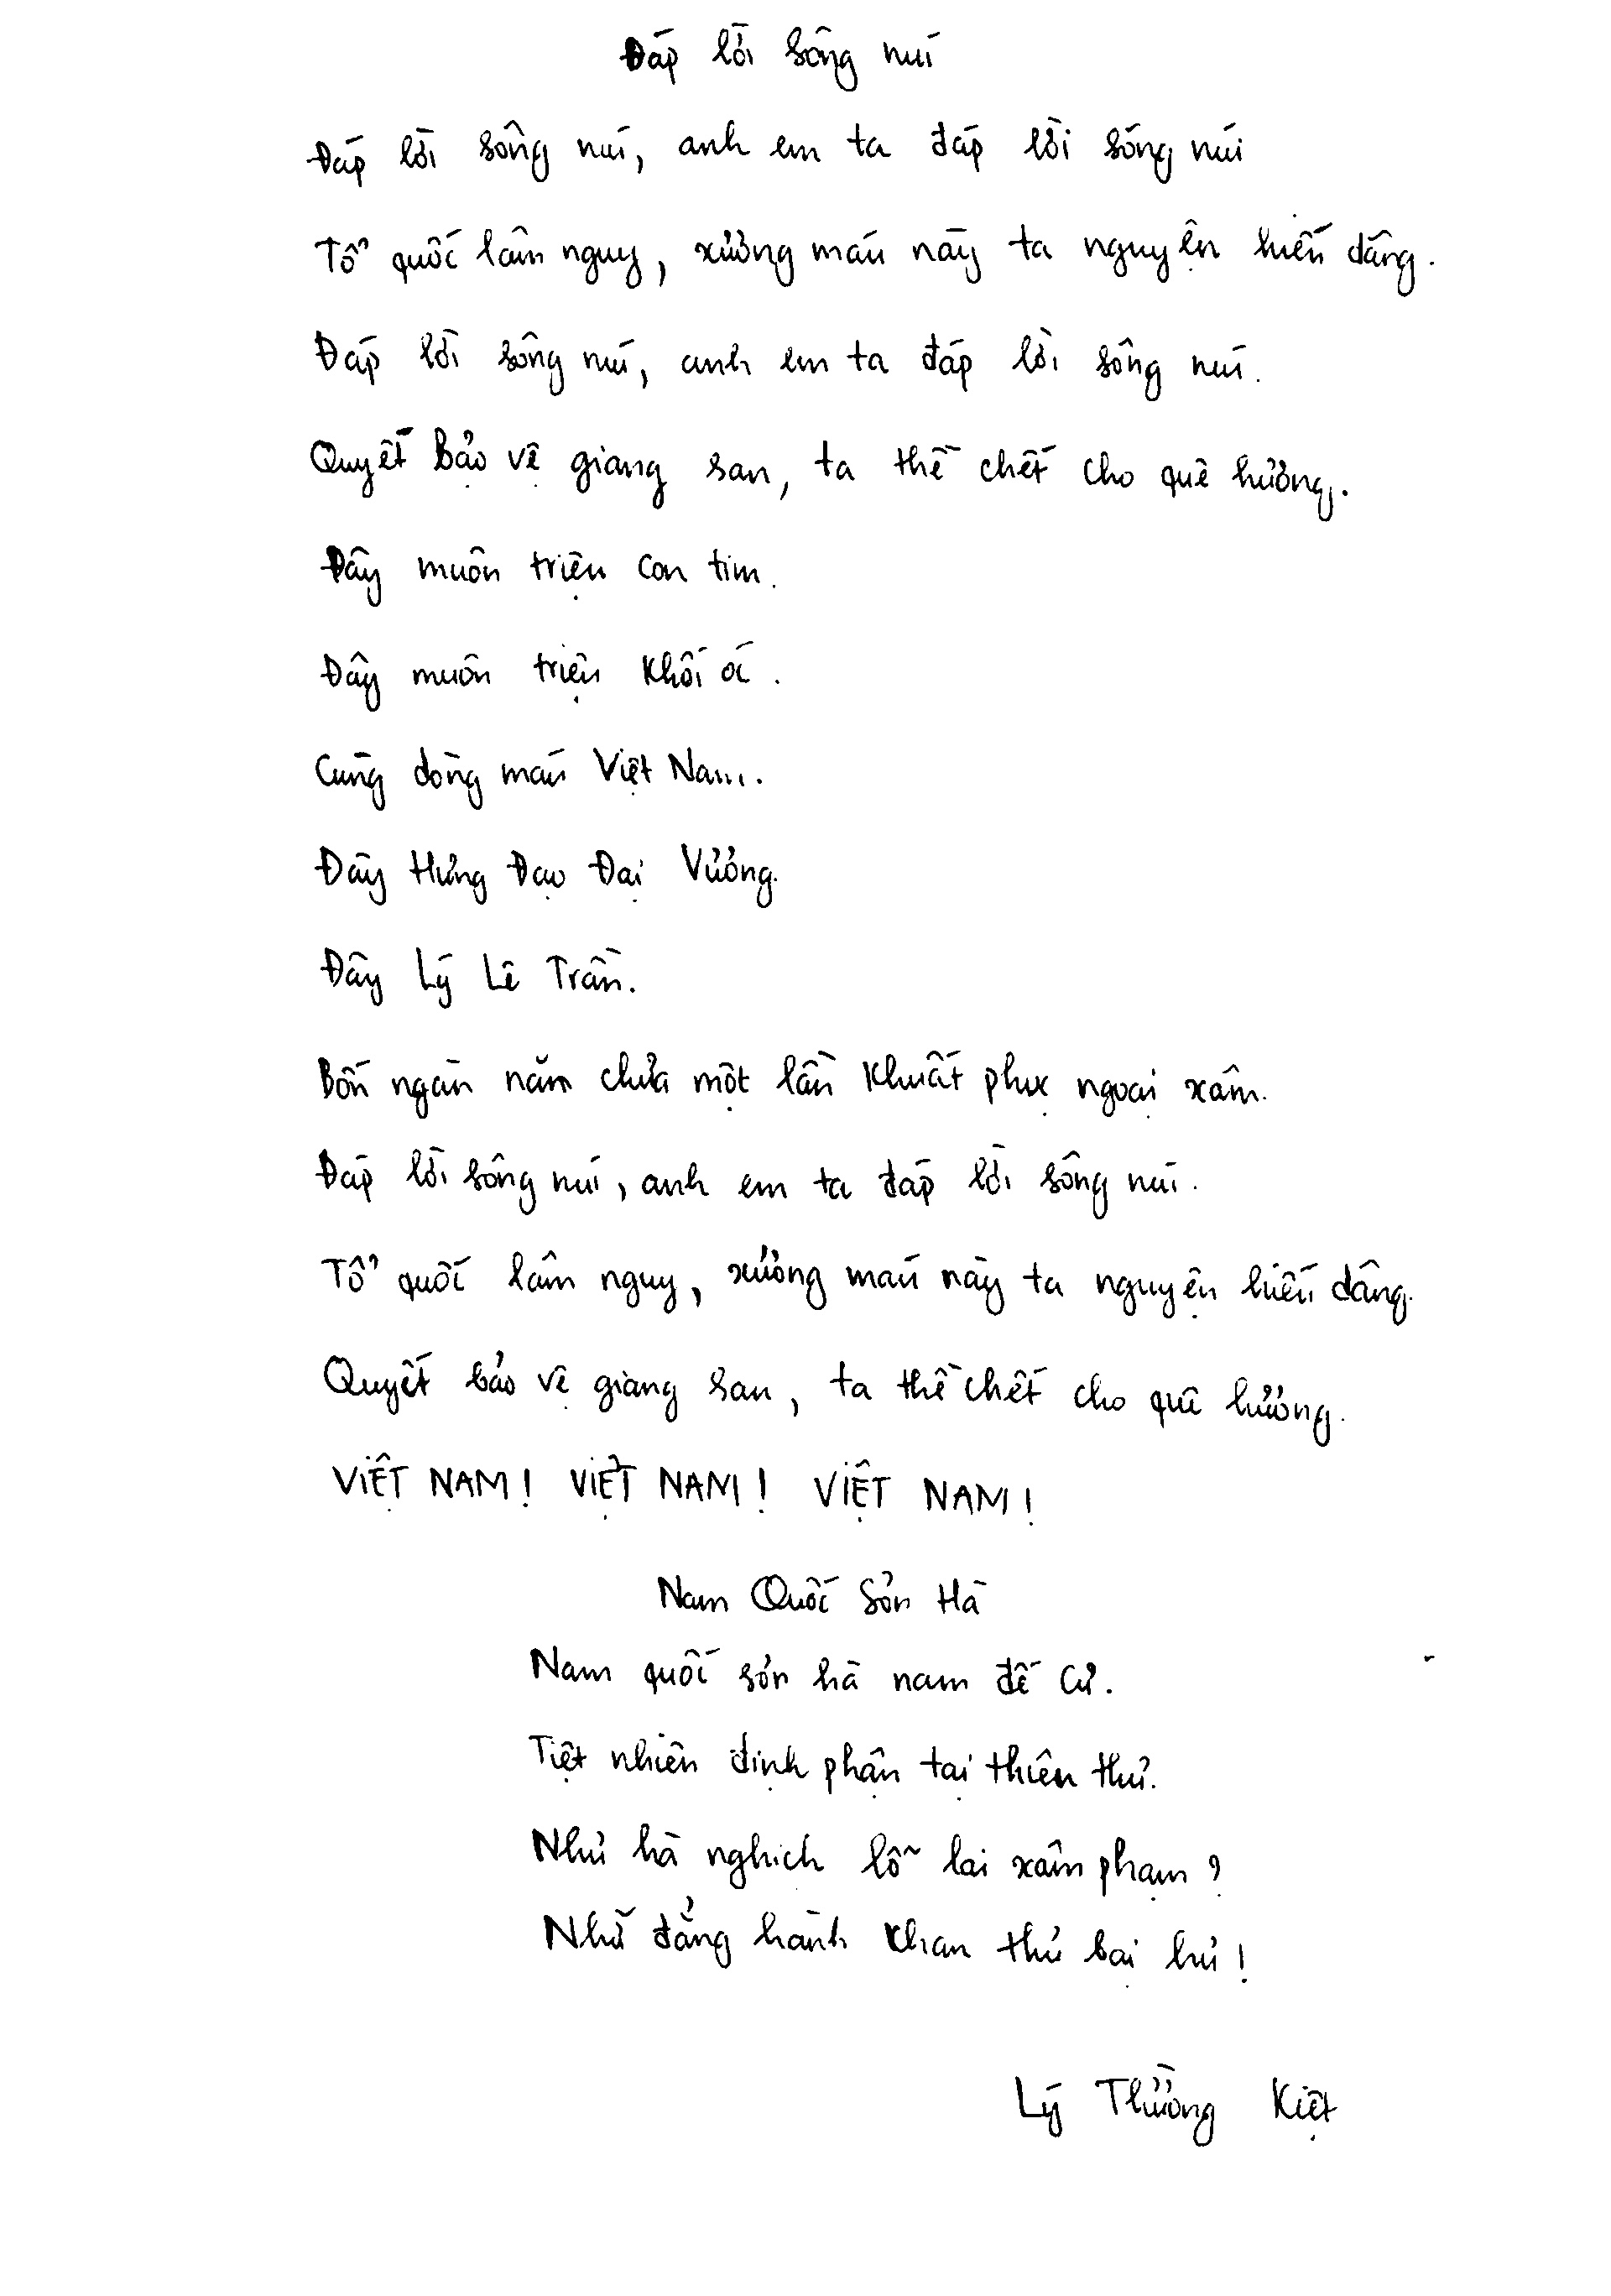 Đáp lời sông núi
Đáp lời sông núi, anh em ta đáp lời sông núi
Tổ quốc lâm nguy, xương máu này ta nguyện hiến dâng.
Đáp lời sông núi, anh em ta đáp lời sông núi.
Quyết bảo vệ giang san, ta thề chết cho quê hương.
Đây muôn triệu con tim.
Đây muôn triệu khối óc.
Cùng dòng máu Việt Nam.
Đây Hưng Đạo Đại Vương.
Đây Lý Lê Trần.
Bốn ngàn năm chưa một lần khuất phục ngoại xâm.
Đáp lời sông núi, anh em ta đáp lời sông núi.
Tổ quốc lâm nguy, xương máu này ta nguyện hiến dâng.
Quyết bảo vệ giang san, ta thề chết cho quê hương.
VIỆT NAM! VIỆT NAM! VIỆT NAM!
Nam Quốc Sơn Hà
Nam quốc sơn hà nam đế cư.
Tiệt nhiên định phận tại thiên thư.
Như hà nghịch lỗ lai xâm phạm?
Nhữ đẳng hành khan thủ bại hư!
Lý Thường Kiệt